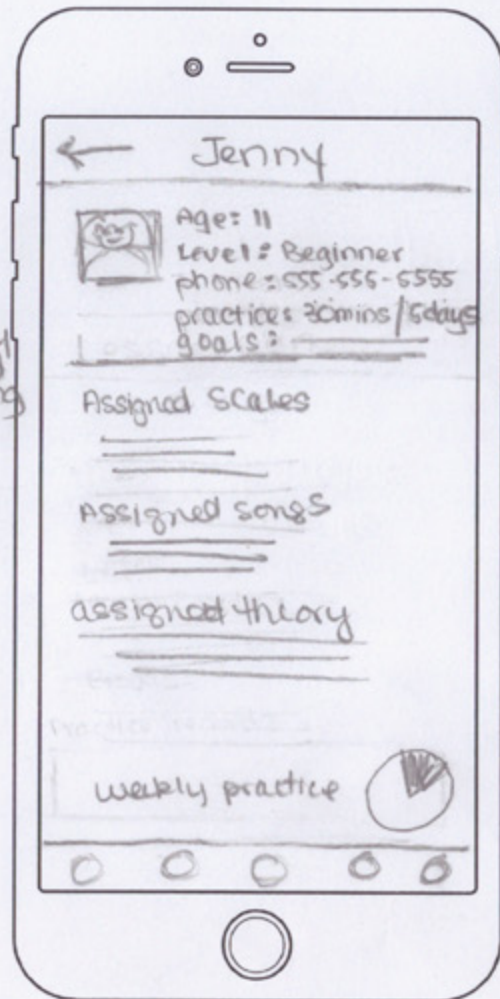 Jenny
Age: 11
Level: Beginner
phone: 555-555-5555
practice: 30mins/5days
goals:
Assigned Scales
Assigned songs
assigned theory
weekly practice